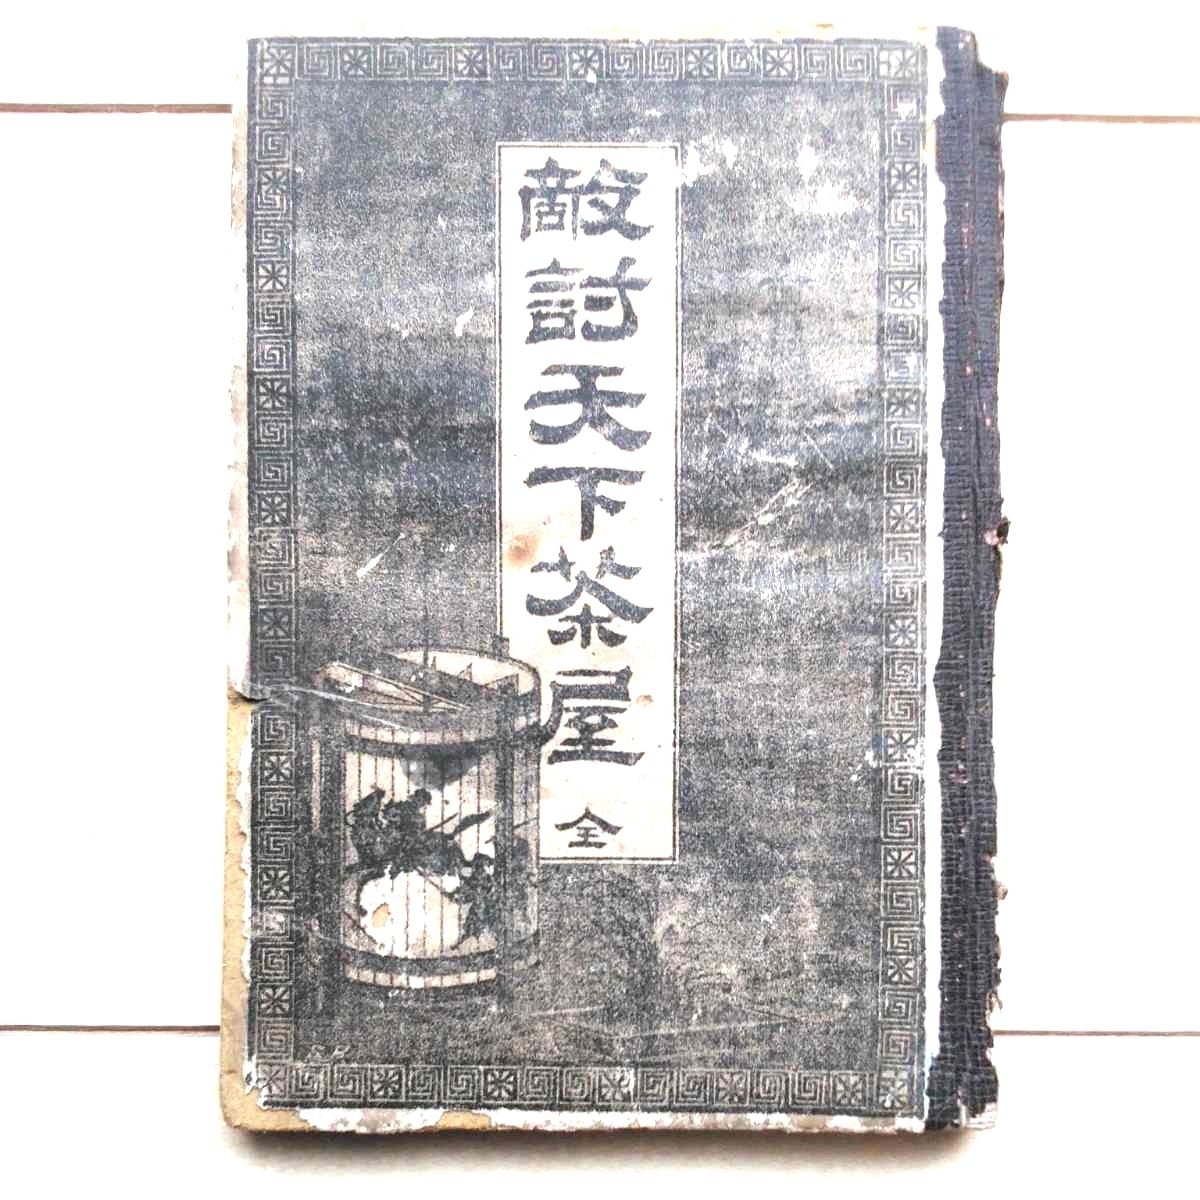 敵討天下茶屋 全